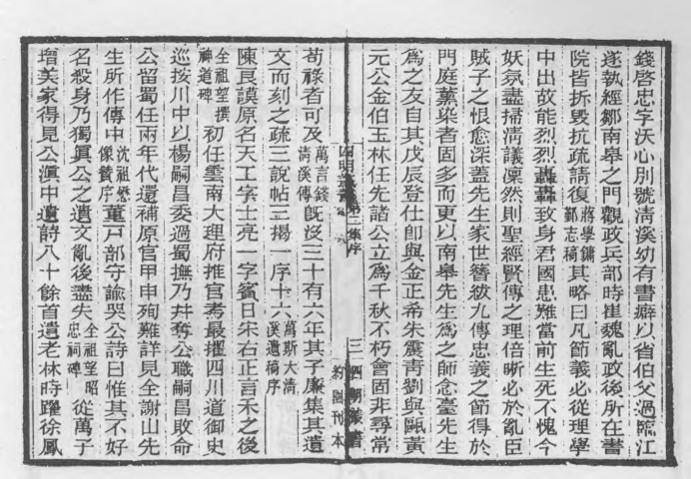 錢啓忠字沃心別號清溪幼有書癖以省伯父過臨江
遂執經鄒南皋之門觀政兵部時崔魏亂政後所在書
院皆拆毀抗疏請復蔣學鏞鄞志稿其略曰凡節義必從理學
中出故能烈烈轟轟致身君國患難當前生死不愧今
妖氛盡掃清議凜然則聖經賢傳之理倍晰必於亂臣
賊子之恨愈深蓋先生家世簪紱九傳忠義之節得於
門庭薰染者固多而更以南皋先生為之師念臺先生
為之友自其戊辰登仕卽與金正希朱震青劉與鷗黃
元公金伯玉林任先諸公立為千秋不朽會固非尋常
四明叢書
第三集序
三一四明叢書
約園刊本
苟祿者可及萬言錢清溪傳旣沒三十有六年其子廉集其遺
文而刻之疏三說帖三揭一序十六萬斯大清溪遺稿序
陳良謨原名天工字士亮一字賓日朱右正言禾之後
全祖望撰神道碑初任雲南大理府推官考最擢四川道御史
巡按川中以楊嗣昌委過蜀撫乃幷奪公職嗣昌敗命
公留蜀任兩年代還補原官甲申殉難詳見全謝山先
生所作傳中沈祖懋像贊序董戸部守諭哭公詩曰惟其不好
名殺身乃獨眞公之遺文亂後盡失全祖望昭忠祠碑從萬子
增美家得見公滇中遺詩八十餘首遺老林時躍徐鳳